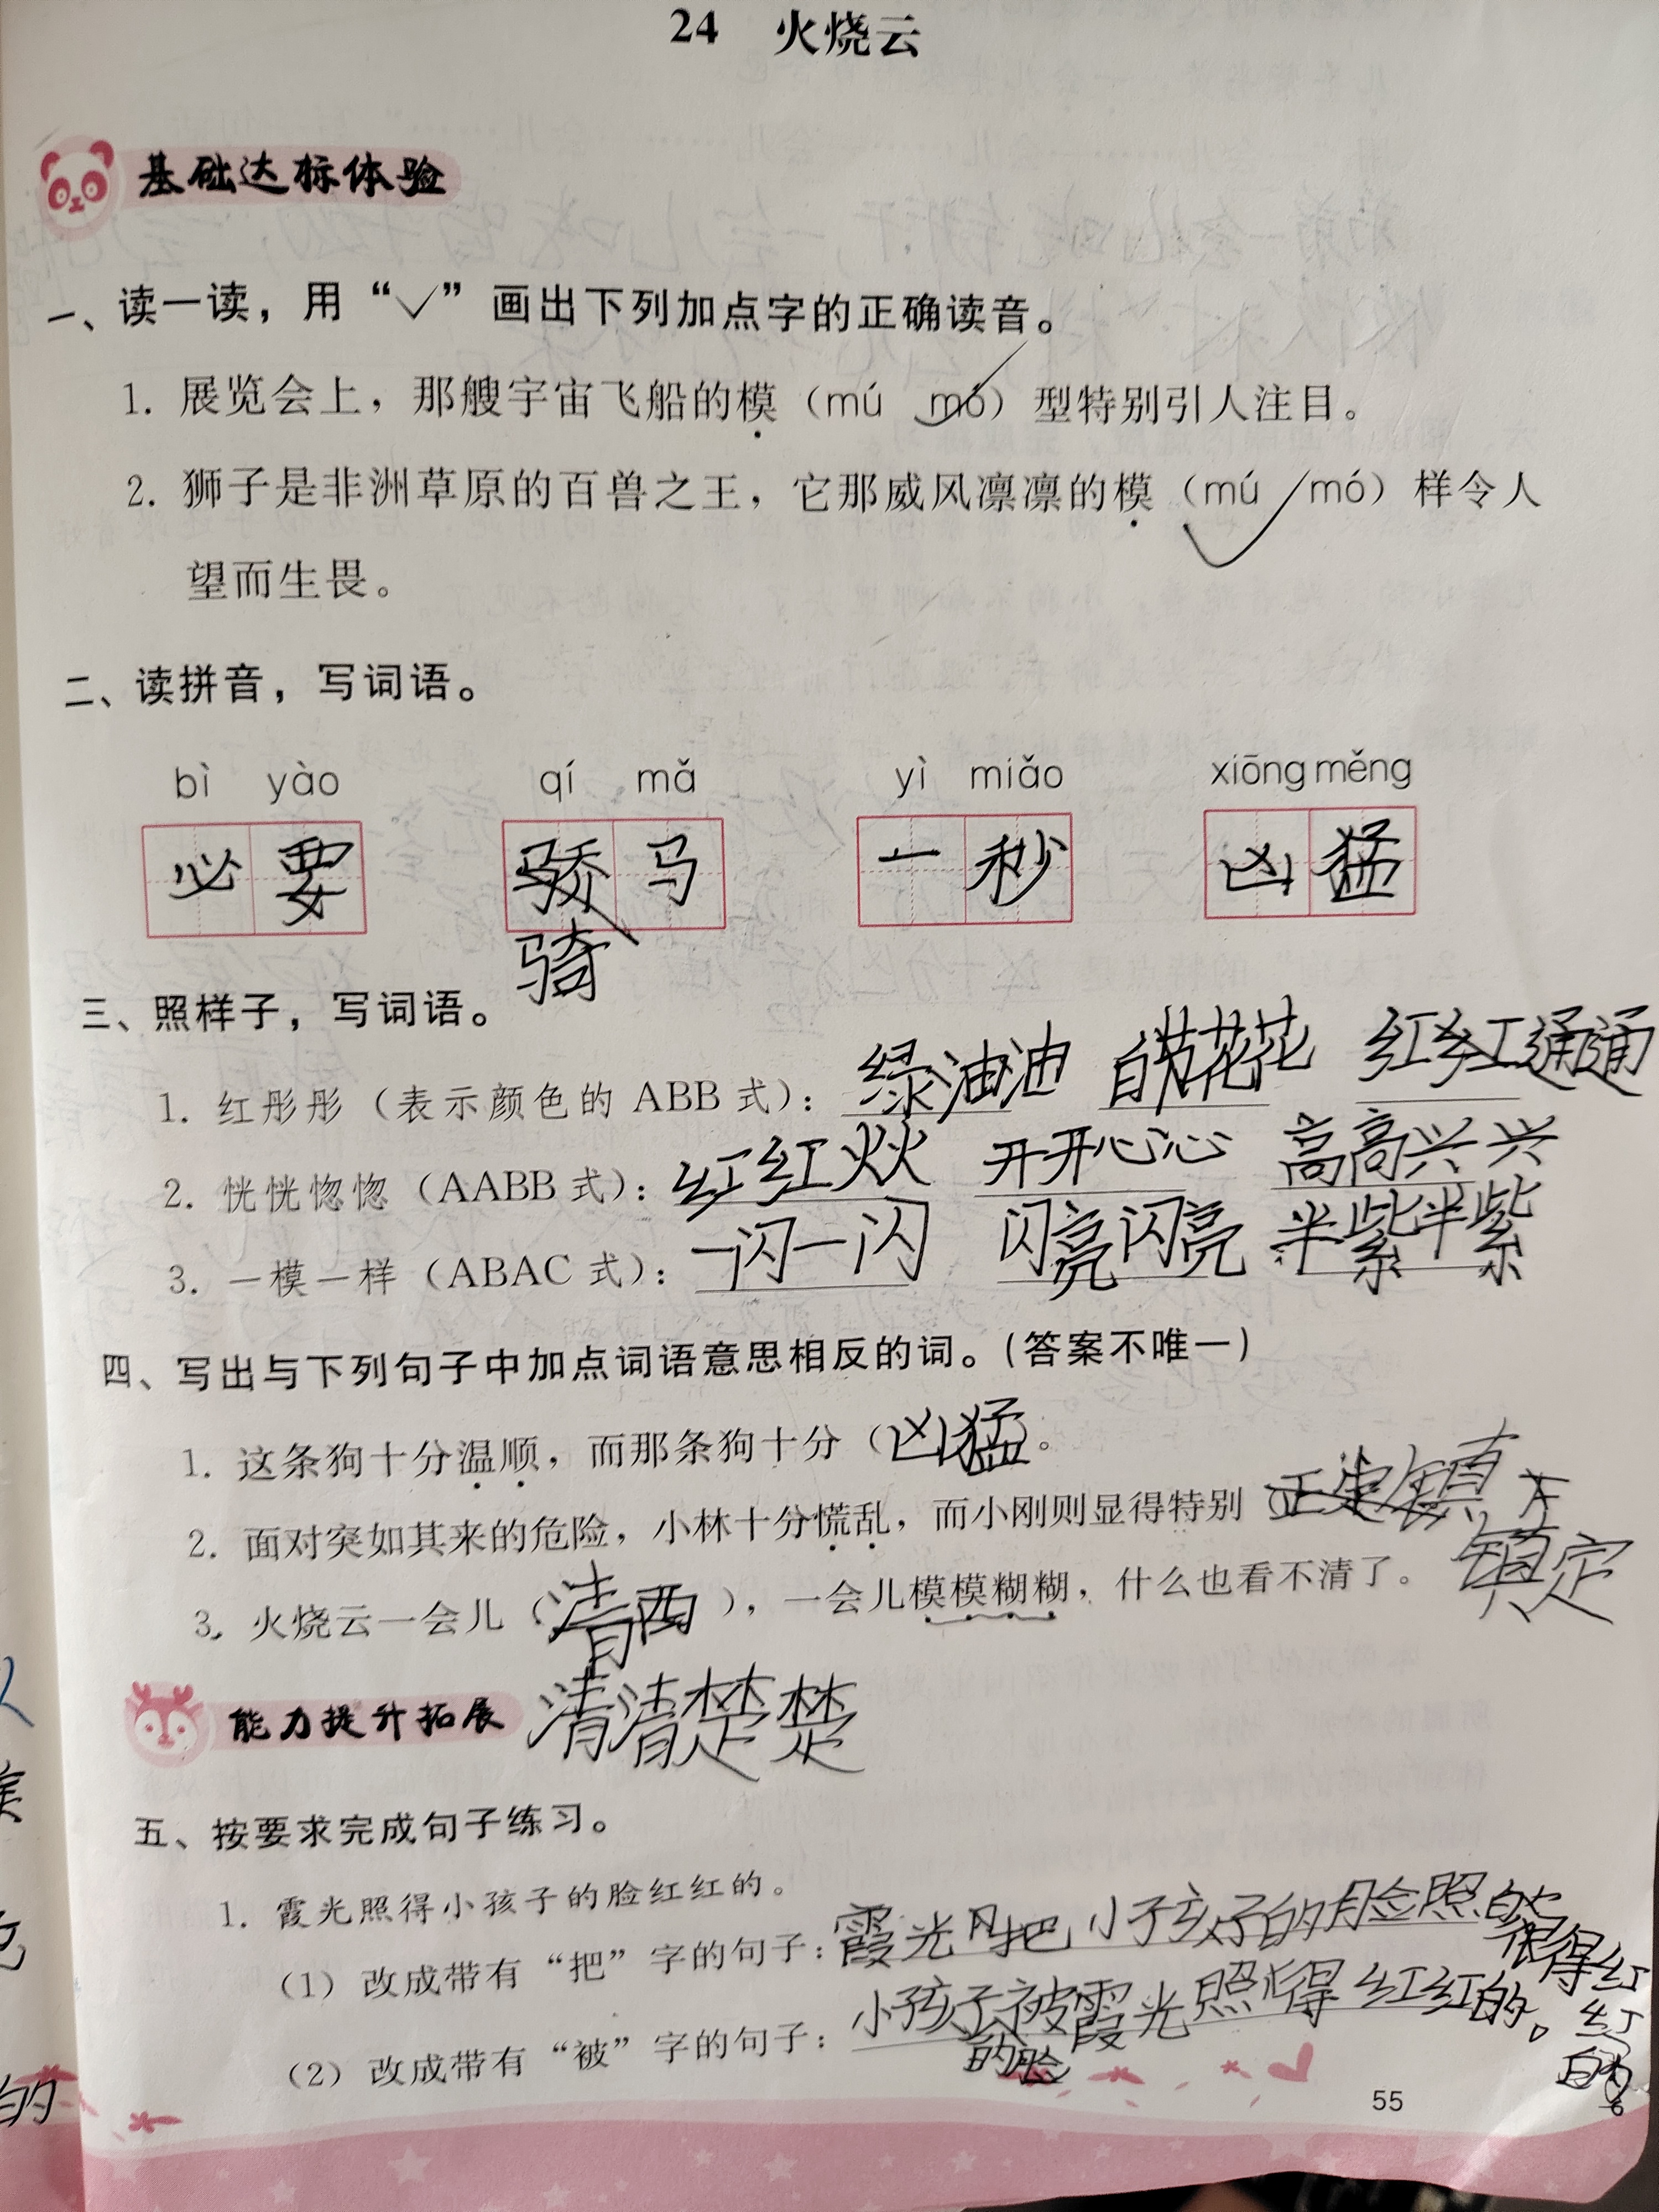 24 火烧云
基础达标体验
一、读一读，用“√”画出下列加点字的正确读音。
1. 展览会上，那艘宇宙飞船的模（mú mó）型特别引人注目。
2. 狮子是非洲草原的百兽之王，它那威风凛凛的模（mú mó）样令人
望而生畏。
二、读拼音，写词语。
bì yào qí mǎ yì miǎo xiōng měng
必要 骄马 一秒 凶猛
骑
三、照样子，写词语。
1. 红彤彤（表示颜色的 ABB 式）：绿油油 白花花 红红通通
2. 恍恍惚惚（AABB 式）：红红火火 开开心心 高高兴兴
3. 一模一样（ABAC 式）：一闪一闪 闪亮闪亮 半紫半紫
四、写出与下列句子中加点词语意思相反的词。（答案不唯一）
1. 这条狗十分温顺，而那条狗十分（凶猛）。
2. 面对突如其来的危险，小林十分慌乱，而小刚则显得特别（
镇定
3. 火烧云一会儿（清西），一会儿模模糊糊，什么也看不清了。
能力提升拓展 清清楚楚
五、按要求完成句子练习。
1. 霞光照得小孩子的脸红红的。
（1）改成带有“把”字的句子：霞光把小孩子的脸照得红
红的。
（2）改成带有“被”字的句子：小孩子被霞光照得红红的。
的脸
55